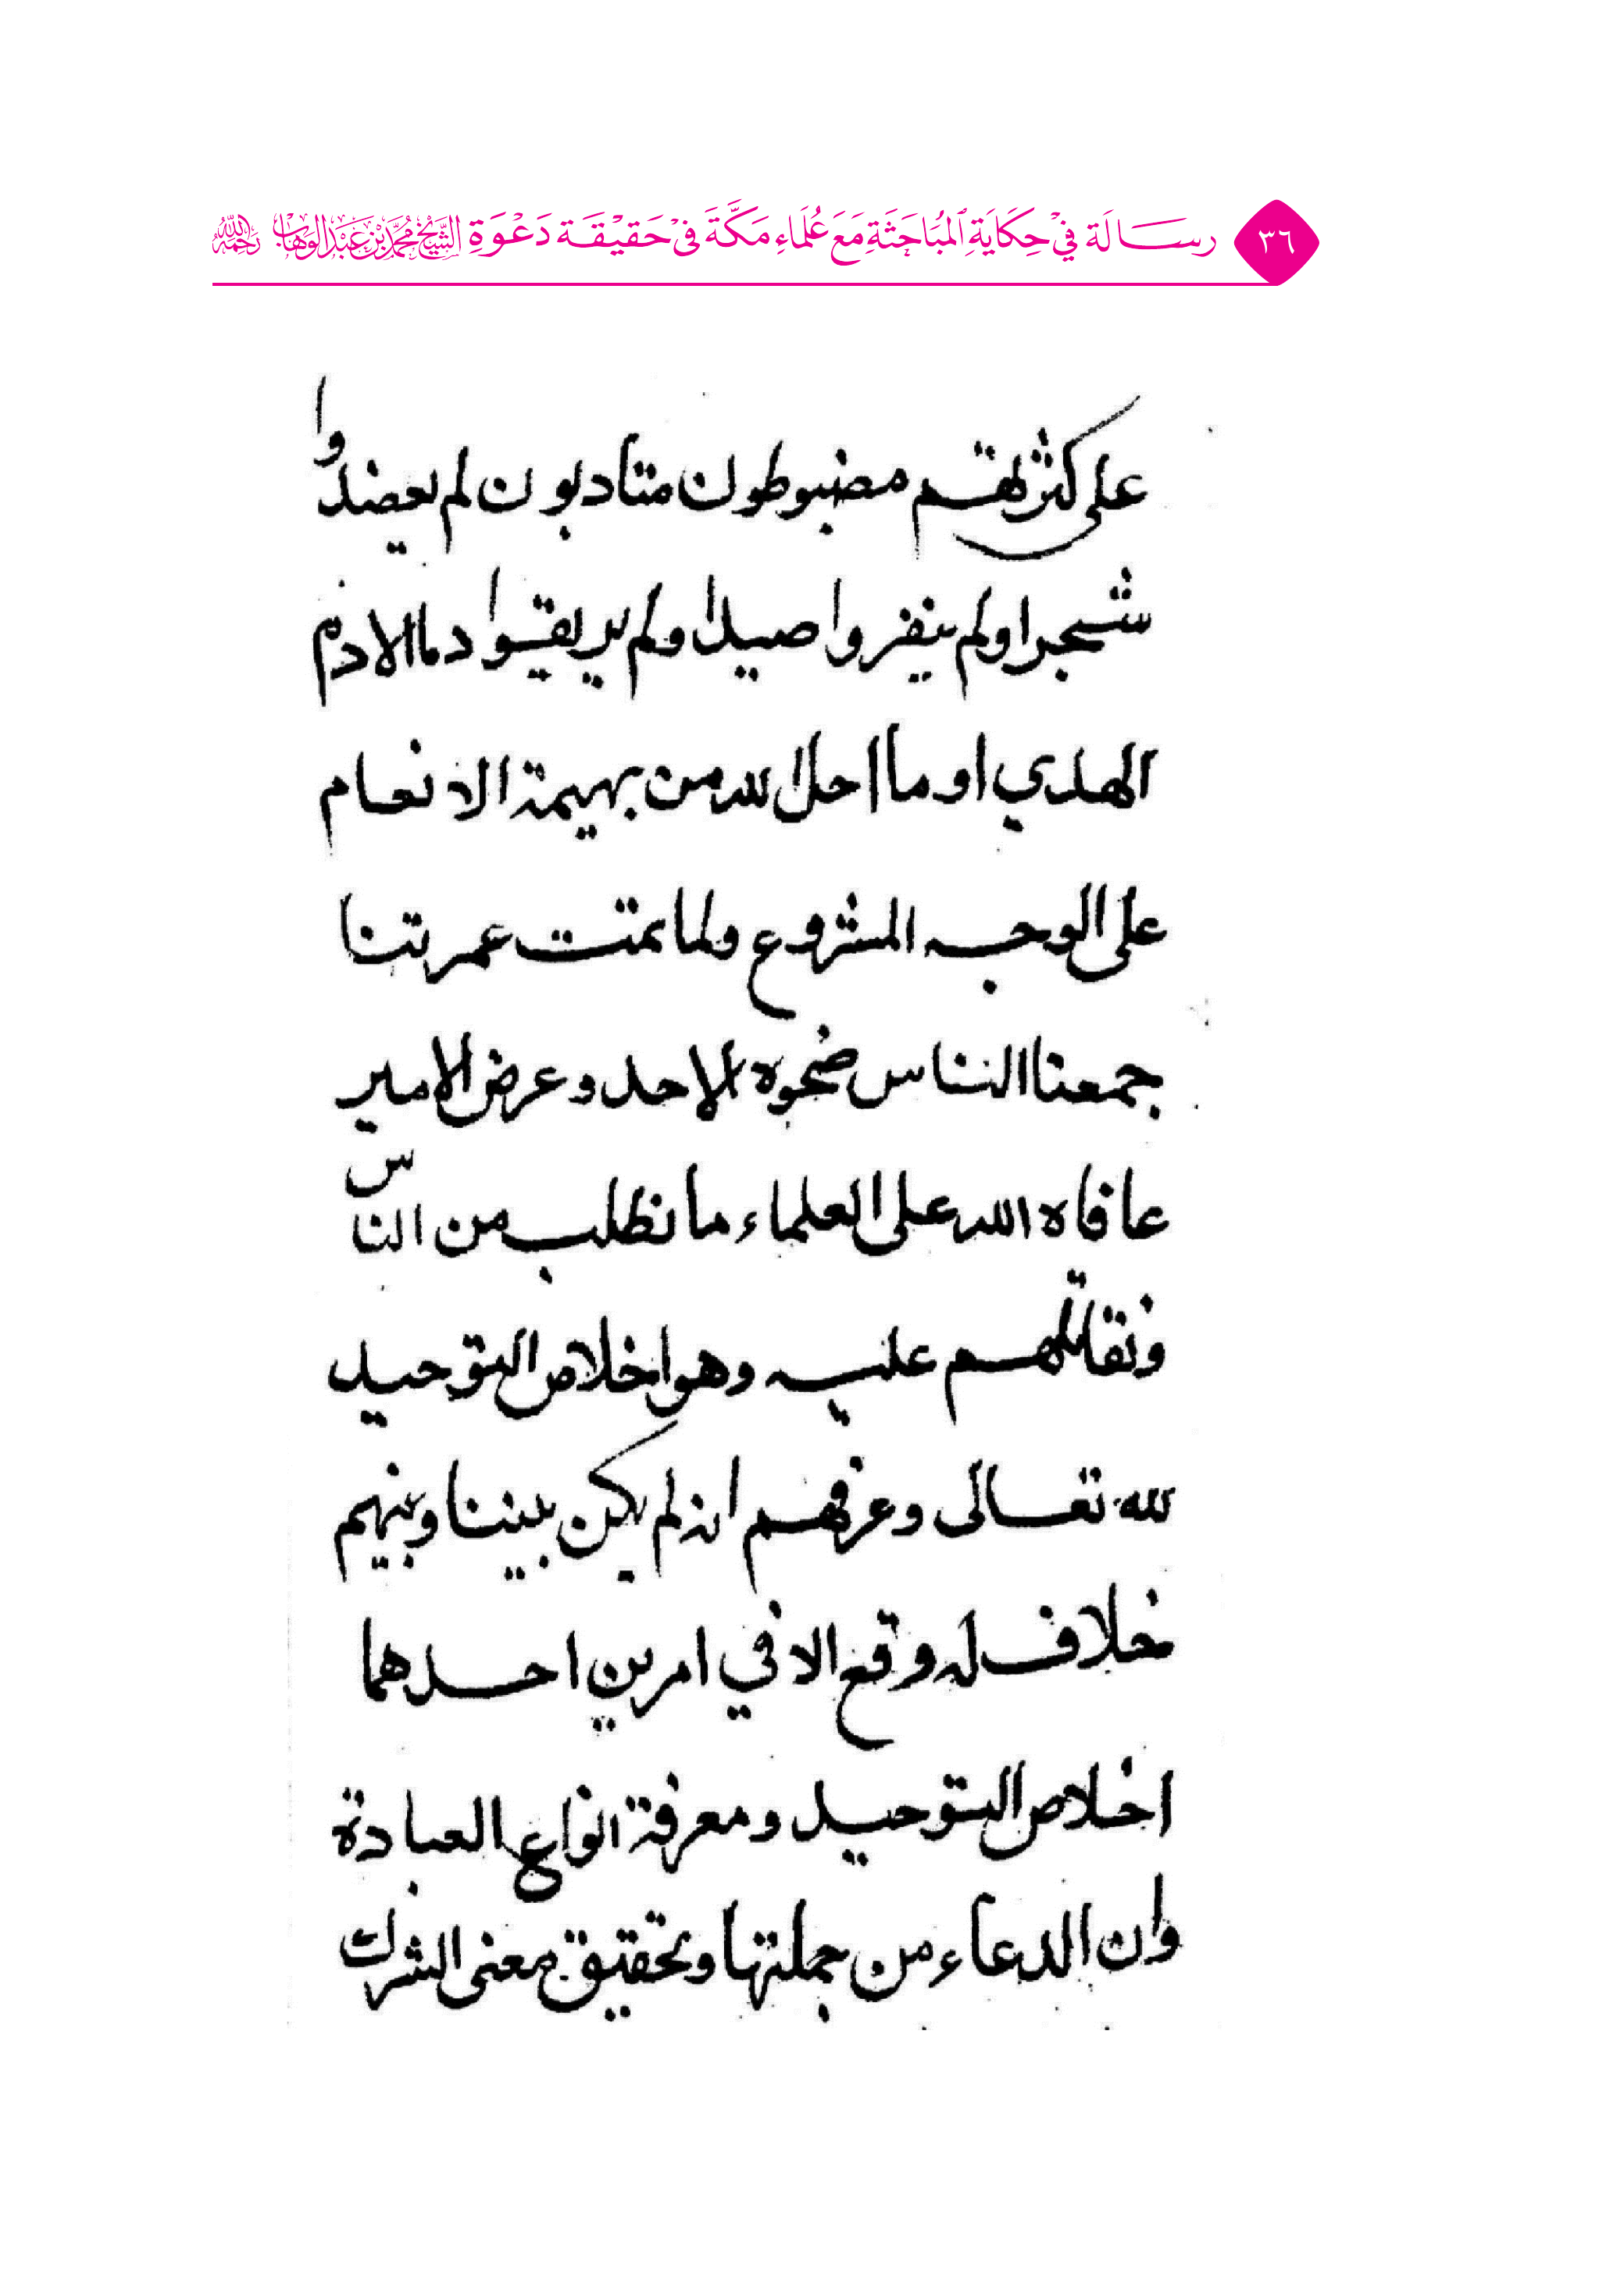 ٣٦ رسالة في حكاية المباحثة مع علماء مكة في حقيقة دعوة الشيخ محمد بن عبد الوهاب رحمه الله
على كثرتهم مضبوطون متادبون لم يعضدوا
شجرا ولم ينفروا صيدا ولم يريقوا دما الا دم
الهدي او ما احل الله من بهيمة الانعام
على الوجه المشروع ولما تمت عمرتنا
جمعنا الناس ضحوه الاحد وعرض الامير
عافاه الله على العلماء ما نطلب من الناس
ونقاتلهم عليه وهو اخلاص التوحيد
لله تعالى وعرفهم انه لم يكن بيننا وبينهم
خلاف له وقع الا في امرين احدهما
اخلاص التوحيد ومعرفة انواع العبادة
وان الدعاء من جملتها وتحقيق معنى الشرك